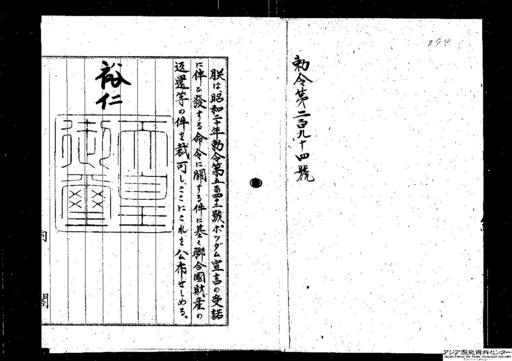 294
勅令第二百九十四號
朕は昭和二十年勅令第五百四十二號ポツダム宣言の受諾
に伴ひ發する命令に關する件に基く聯合國財産の
返還等の件を裁可し、ここにこれを公布せしめる。
裕仁
天皇御璽
内閣
アジア歴史資料センター